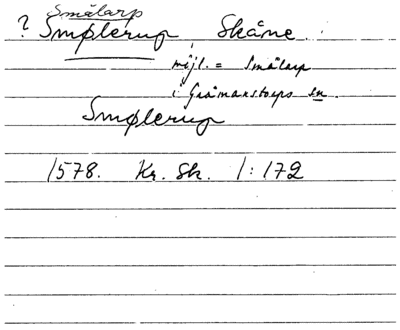 Smålarp
? Smølerup Skåne.
möjl. = Smålarp
i Gråmanstorps sn.
Smølerup
1578. Kr. Sk. 1:172